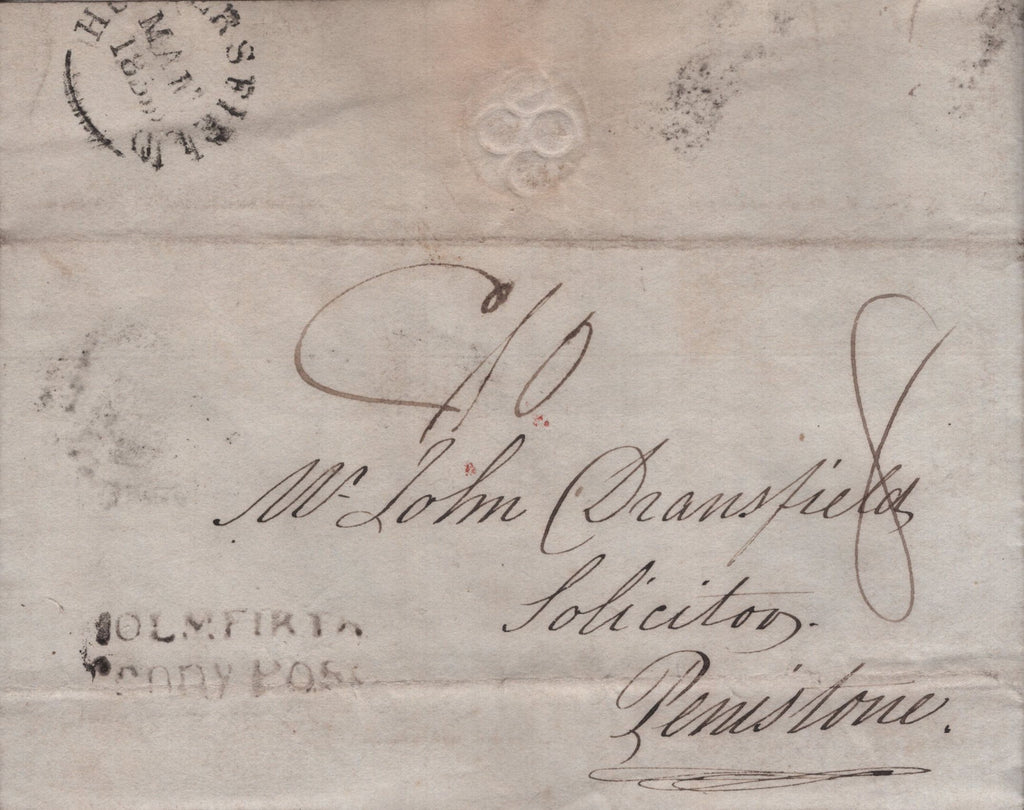 HUDDERSFIELD
MAR
183
8
Mr. John Dransfield
Solicitor.
Penistone.
HOLMFIRTH
Penny Post